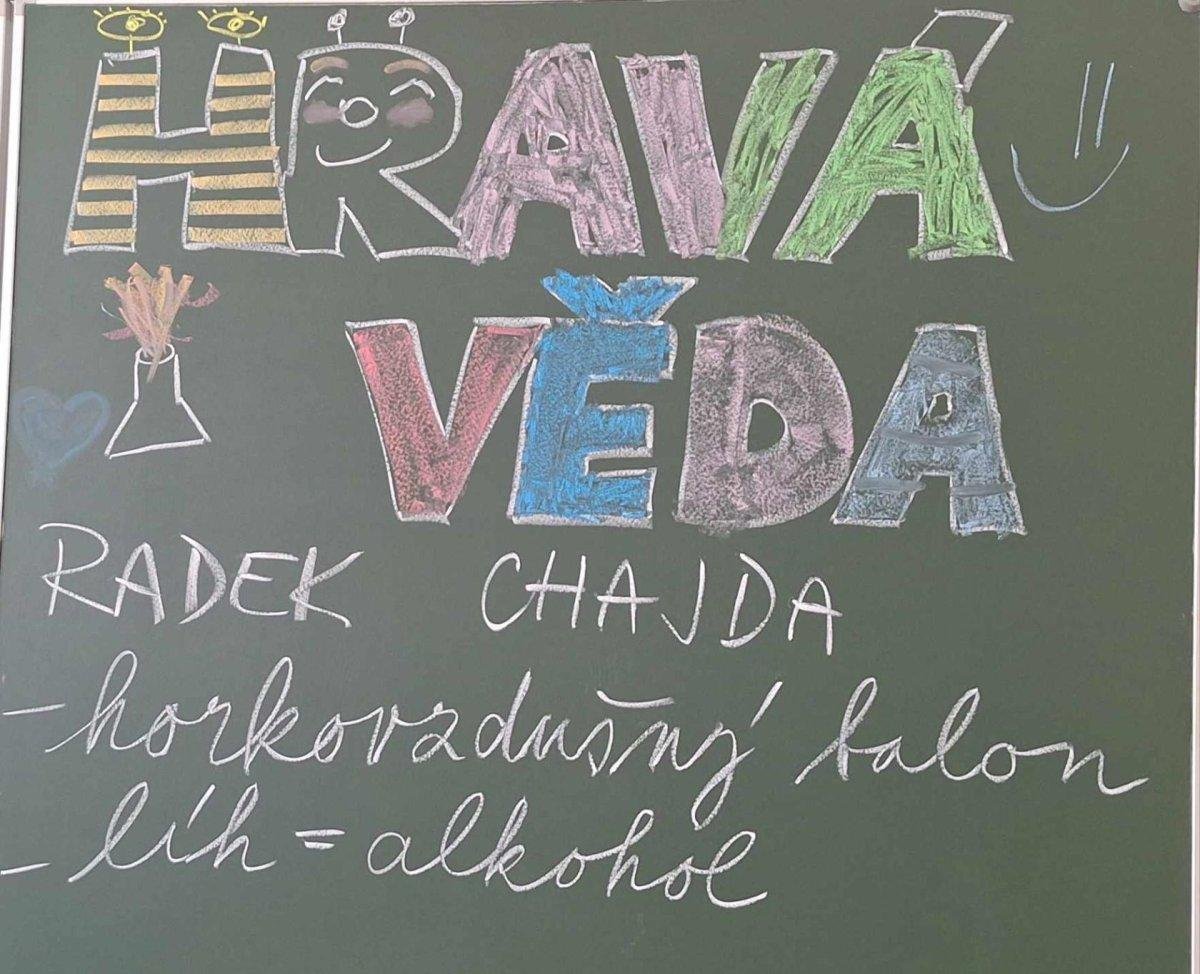 HRAVÁ
VĚDA
RADEK CHAJDA
- horkovzdušný balon
- líh = alkohol